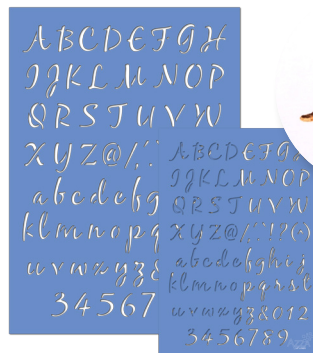 A B C D E F G H
I J K L M N O P
Q R S T U V W
X Y Z @ /
a b c d e f g
k l m n o p q
u v w x y z &
3 4 5 6 7
A B C D E F G
I J K L M N O P
Q R S T U V W
X Y Z @ / ! ? ( )
a b c d e f g h i j
k l m n o p q r s t
u v w x y z & 0 1 2
3 4 5 6 7 8 9